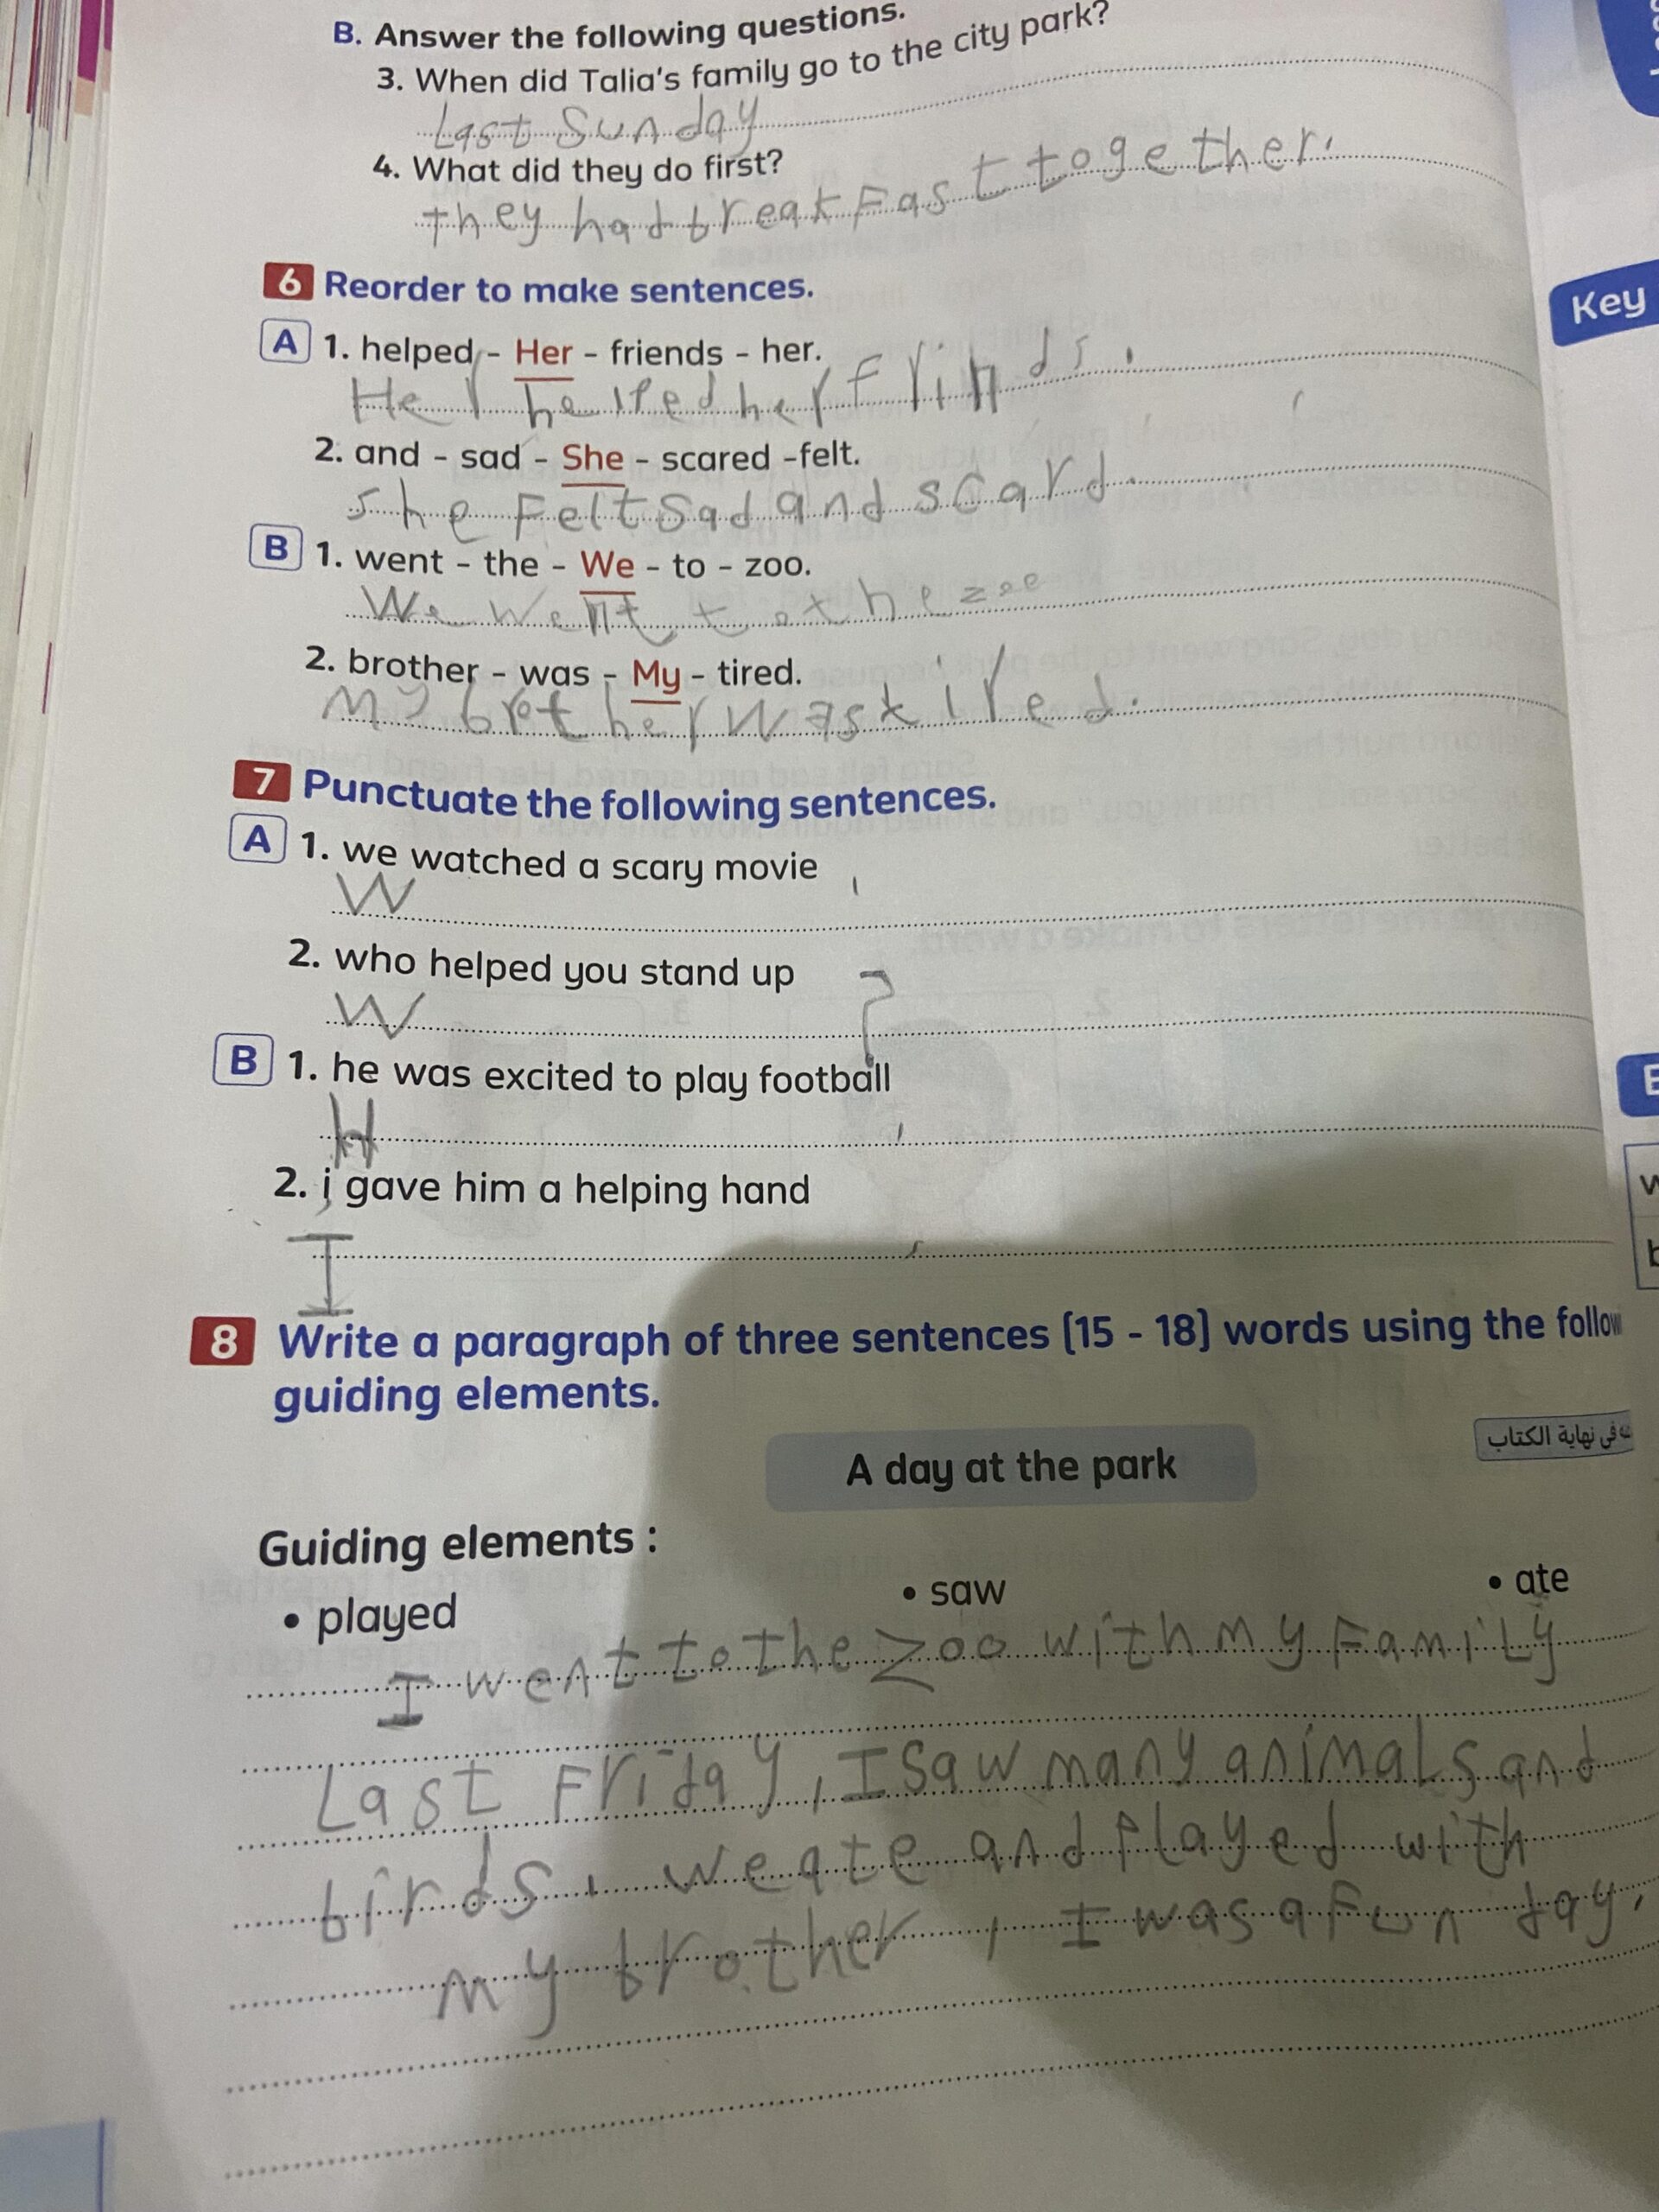 B. Answer the following questions.
3. When did Talia's family go to the city park?
Last Sunday
4. What did they do first?
they had breakFast together.
6 Reorder to make sentences.
Key
A 1. helped - Her - friends - her.
Her helped her frinds.
2. and - sad - She - scared -felt.
she Felt sad and scard.
B 1. went - the - We - to - zoo.
We went to the zoo
2. brother - was - My - tired.
My brother was tired.
7 Punctuate the following sentences.
A 1. we watched a scary movie .
W
2. who helped you stand up ?
W
B 1. he was excited to play football
H .
2. i gave him a helping hand
I .
8 Write a paragraph of three sentences (15 - 18) words using the follow
guiding elements.
فى نهاية الكتاب
A day at the park
Guiding elements :
• played • saw • ate
I went to the zoo with my Family
Last Friday, I saw many animals and
birds. we ate and played with
my brother , I was a Fun day.